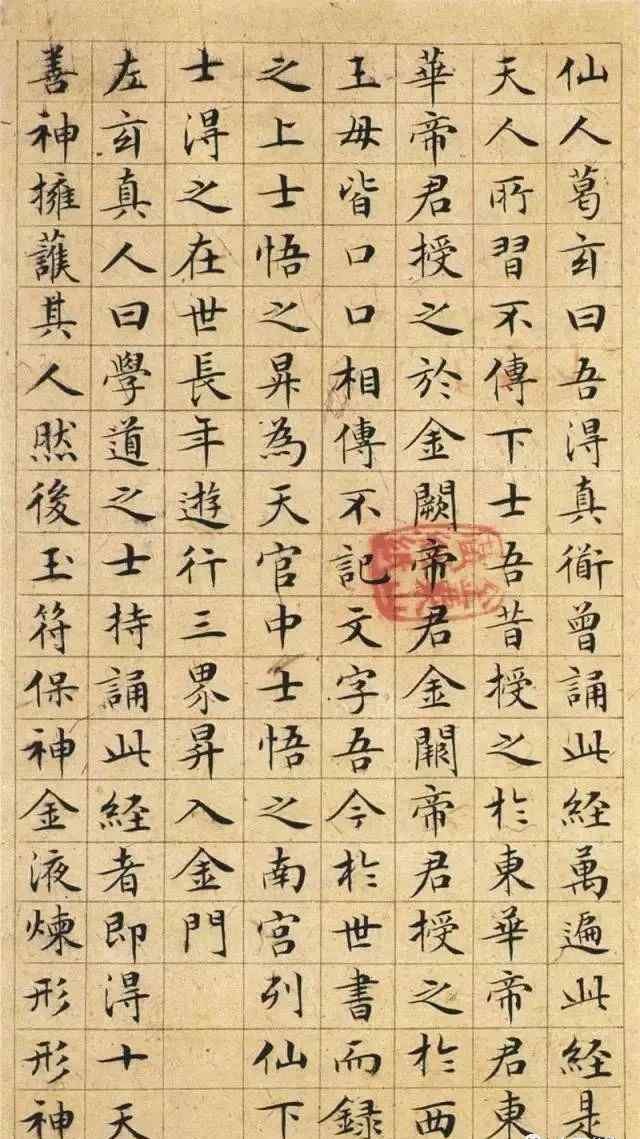 仙人葛玄曰吾得真衜曾誦此經萬遍此經是
天人所習不傳下士吾昔授之於東華帝君東
華帝君授之於金闕帝君金闕帝君授之於西
王母皆口口相傳不記文字吾今於世書而録
之上士悟之昇為天官中士悟之南宮列仙下
士得之在世長年遊行三界昇入金門
左玄真人曰學道之士持誦此經者即得十天
善神擁護其人然後玉符保神金液煉形形神